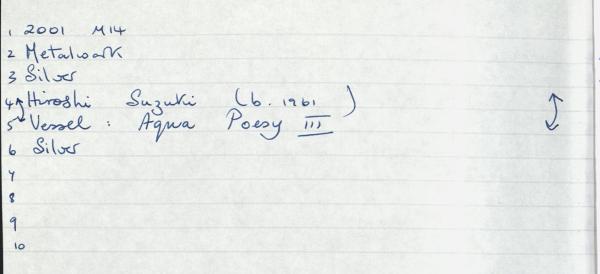 1 2001 M14
2 Metalwork
3 Silver
4 Hiroshi Suzuki (b. 1961)
5 Vessel: Aqua Poesy III
6 Silver
7
8
9
10